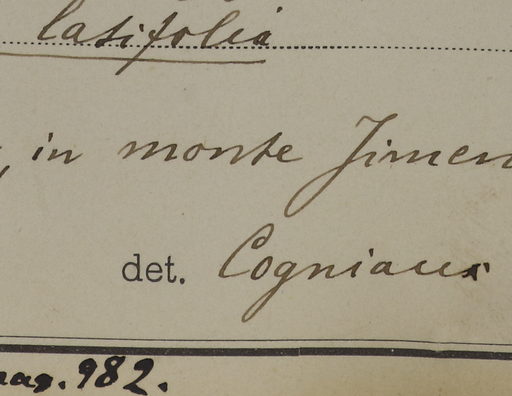 latifolia
, in monte Jimen
det. Cogniaux
982.